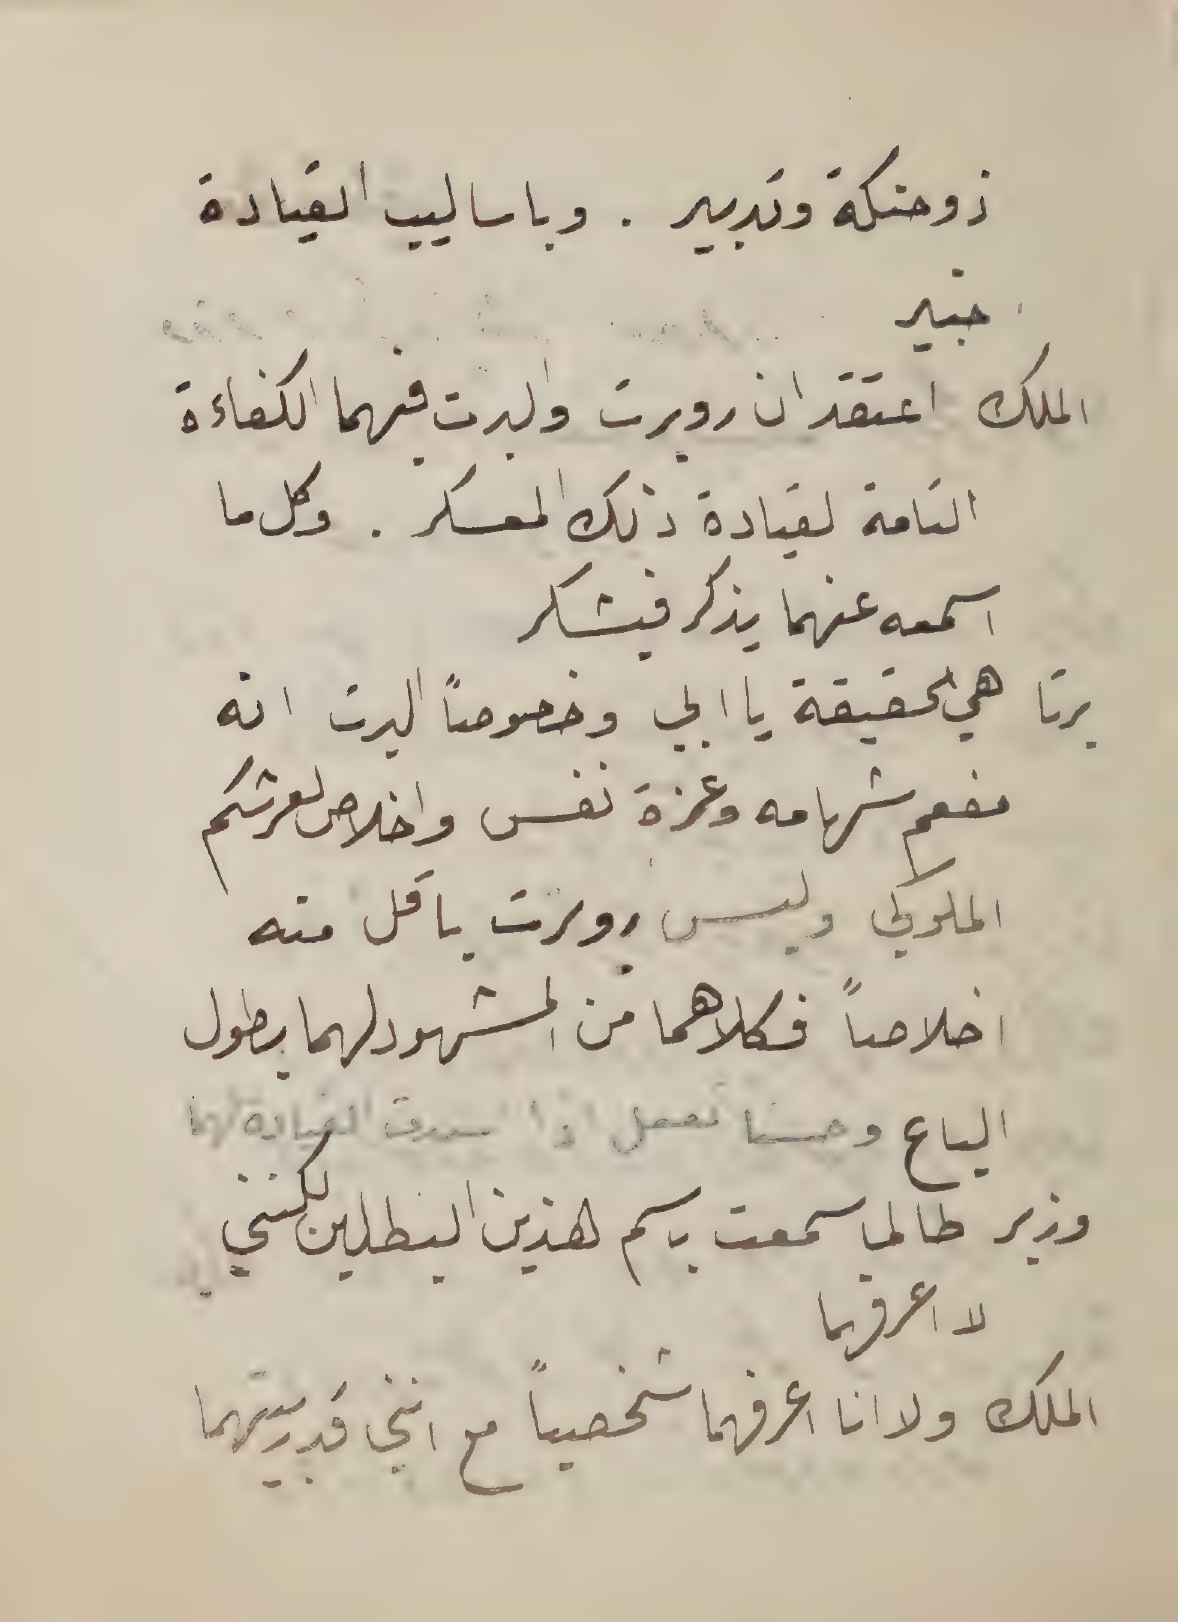 ذو حنكة وتدبير . وباساليب القيادة
خبير
الملك اعتقد ان روبرت والبرت فيهما الكفاءة
التامة لقيادة ذلك المعسكر . وكل ما
اسمعه عنهما يذكر فيشكر
برتا هي الحقيقة يا ابي وخصوصاً البرت انه
مفعم شهامه وعزة نفس واخلاص لعرشكم
الملوكي وليس روبرت باقل منه
اخلاصاً فكلاهما من المشهود لهما بطول
الباع وحسنا تفعل اذا القيادة لهما
وزير طالما سمعت باسم هذين البطلين لكنني
لا اعرفهما
الملك ولا انا اعرفهما شخصياً مع انني قد ربيتهما